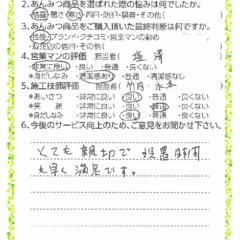 2.あんみつ商品を選ばれた際の悩みは何でしたか。
結露・暑さ・寒さ・西日・防犯・騒音・その他(　)
3.あんみつ商品をご購入頂いた最終判断は何ですか。
性能・ブランド・クチコミ・営業マンの勧め
取売店の信用・その他(　)
4.営業マンの評価　担当者(　)
非常に良い・良い・普通・良くない
*身だしなみ　清潔感あり・普通・清潔感なし
5.施工技師評価　担当者(　)
*あいさつ　・非常に良い・良い・普通・良くない
*笑　顔　・非常に良い・良い・普通・良くない
*身だしなみ・非常に良い・良い・普通・良くない
6.今後のサービス向上のため、ご意見をお聞かせ下さい。
とても親切で設置時間
も早く満足です。